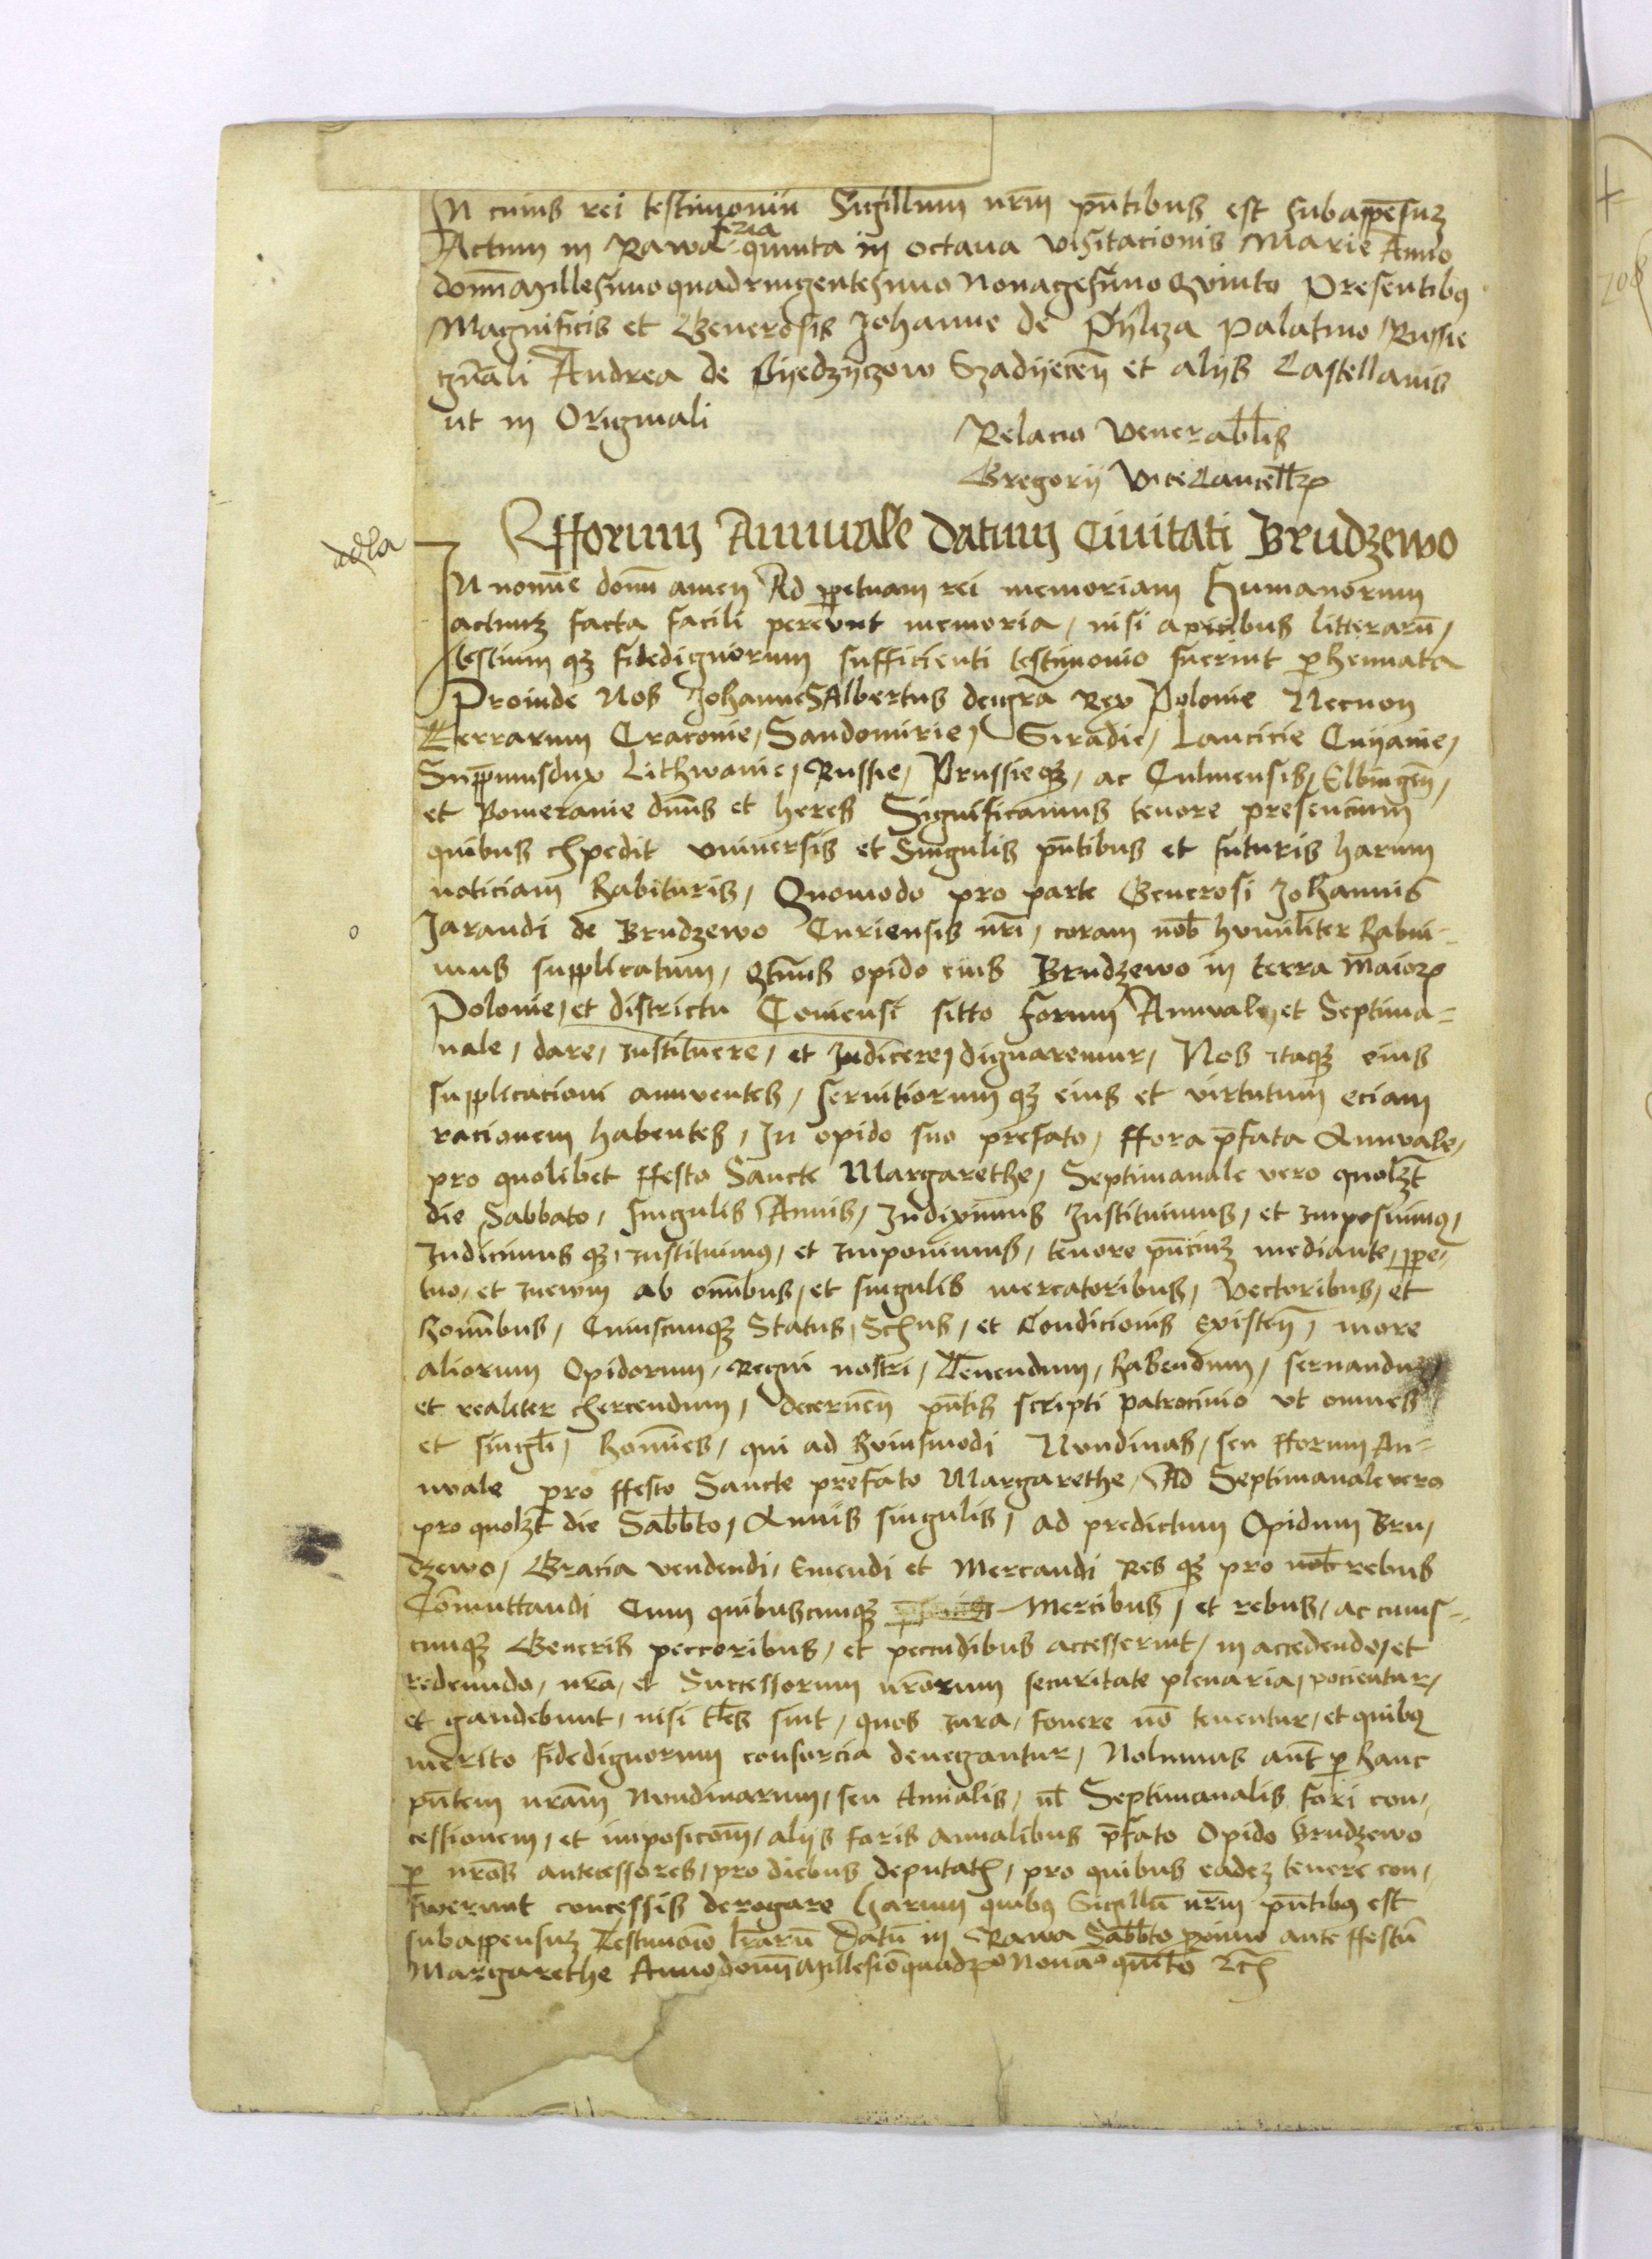 In cuius rei testimoniu Sigillum nr̄m pn̄tibus est subappēsuȝ
Actum in Rawa feria quinta in octaua visitacionis Marie Anno
domī Millesimo quadringentesimo Nonagesimo Qvinto Presentibȝ
Magnificis et Generosis Johanne de Pyleza palatino Russie
gn̄ali Andrea de Byedzyczow Szadijecēn et alijs Castellanis
ut in Originali
Relacio venerabl̄is
Gregorij ViceCancell̄ꝝ
Fforum Annuale datum Ciuitati Brudzewo
adla
In nomīe domī amen Ad ꝑpetuam rei memoriam Humanorum
actuuȝ facta facili pereunt memoria, nisi apicibus litterarū,
testium qȝ fidedignorum sufficienti testimonio fuerint ꝑhennata
Proinde Nos JohannesAlbertus dei grā Rex Polonie Necnon
Terrarum Cracouie, Sandomirie, Siradie, Lancicie Cuyauie,
Supp̄musdux Lithwanie, Russie, Prussieqȝ, ac Culmensis, Elbingēn,
et Pomeranie dnūs et heres Significamus tenore presencium
quibus expedit vniuersis et Singulis pn̄tibus et futuris harum
noticiam habituris, Quomodo pro parte Generosi Johannis
Jarandi de Brudzewo Curiensis nr̄i, coram nob̄ humiliter habui-
mus supplicatum, Qtīnus opido eius Brudzewo in terra maioꝝ
Polonie, et districtu Coniensi sitto forum Annuale, et Septima=
nale, dare, instituere, et Indicere, dignaremur, Nos itaqȝ eius
supplicacioni annuentes, seruitiorum qȝ eius et virtutum eciam
racionem habentes, In opido suo prefato, ffora p̄fata Annuale,
pro quolibet ffesto Sancte Margarethe, Septimanale vero quolȝt
die Sabbato, singulis Annis, Indiximus Instituimus, et imposuimȝ,
Indicimus qȝ, instituimȝ, et imponimus, tenore pn̄ciuȝ mediante, ꝑpe-
tuo, et ineuum ab omībus, et singulis mercatoribus, Vectoribus, et
homībus, Cuiuscumqȝ Status, Sexus, et Condicionis Existēn, more
aliorum Opidorum, Regni nostri, Tenendum, habendum, seruanduȝ,
et realiter exercendum, decernēn pn̄tis scripti patrocinio vt omnes
et singl̄i, homīes, qui ad huiusmodi Nundinas, seu fforum An=
nuale pro ffesto Sancte prefato Margarethe, Ad Septimanale vero
pro quolȝt die Sabb̄to, Annis singulis, ad predictum Opidum Bru,
dzewo, Gracia vendendi, Emendi et Mercandi Res qȝ pro nob̄ rebus
Comuttandi Cum quibuscumqȝ Mercibus, et rebus, ac cuius-
cumqȝ Generis peccoribus, et peccudibus accesserint, in accedendo, et
redeundo, nrā, et Successorum nrōrum securitate plenaria, pocientur,
et gaudebunt, nisi tl̄es sint, quos iura, fouere nō tenentur, et quibȝ
merito fidedignorum consorcia denegantur, Nolumus aūt ꝑ hanc
pn̄tem nrām Nundinarum, seu Annalis, ul̄ Septimanalis fori con-
cessionem, et imposicōm, alijs foris annalibus p̄fato Opido Brudzewo
ꝑ nrōs antecessores, pro diebus deputatis, pro quibus eadeȝ tenere con-
sweuerunt concessis derogare Harum quibȝ Sigillū nr̄m pn̄tibȝ est
subappensuȝ Testimonio lrārū Datū in Rawa Sabb̄to ꝓximo ante ffestū
Margarethe Anno domī Millesīo quadrīo Nonāo quīto etc